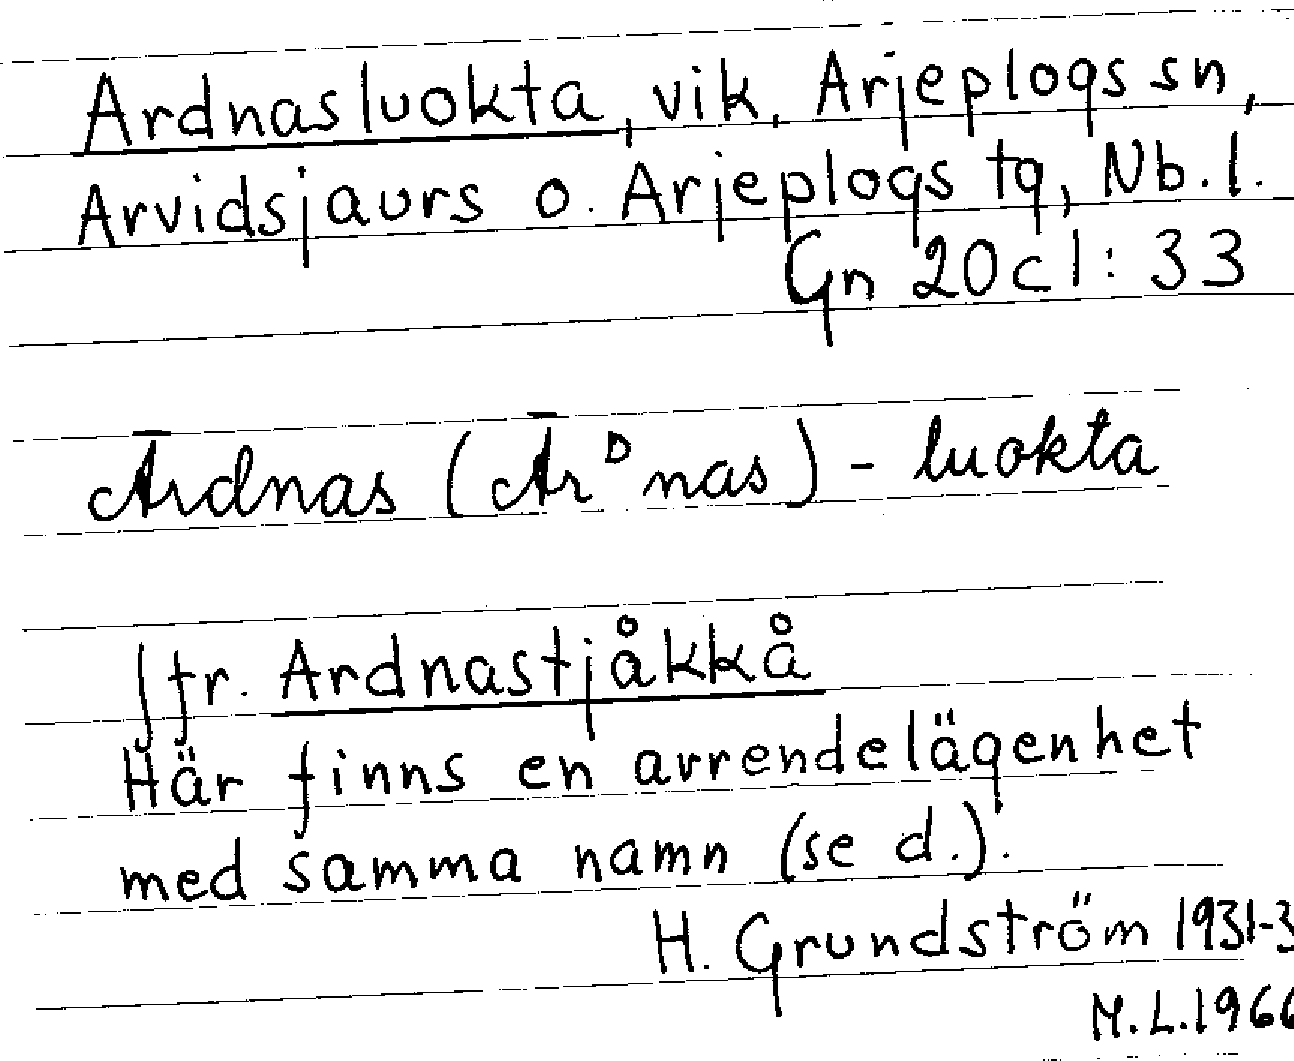 Ardnasluokta, vik, Arjeplogs sn,
Arvidsjaurs o. Arjeplogs tg, Nb.l.
Gn 20c1:33
Ārdnas (Ārᴰnas) - luokta
Jfr. Ardnastjåkkå
Här finns en arrendelägenhet
med samma namn (se d.).
H. Grundström 1931-3
M.L.1966